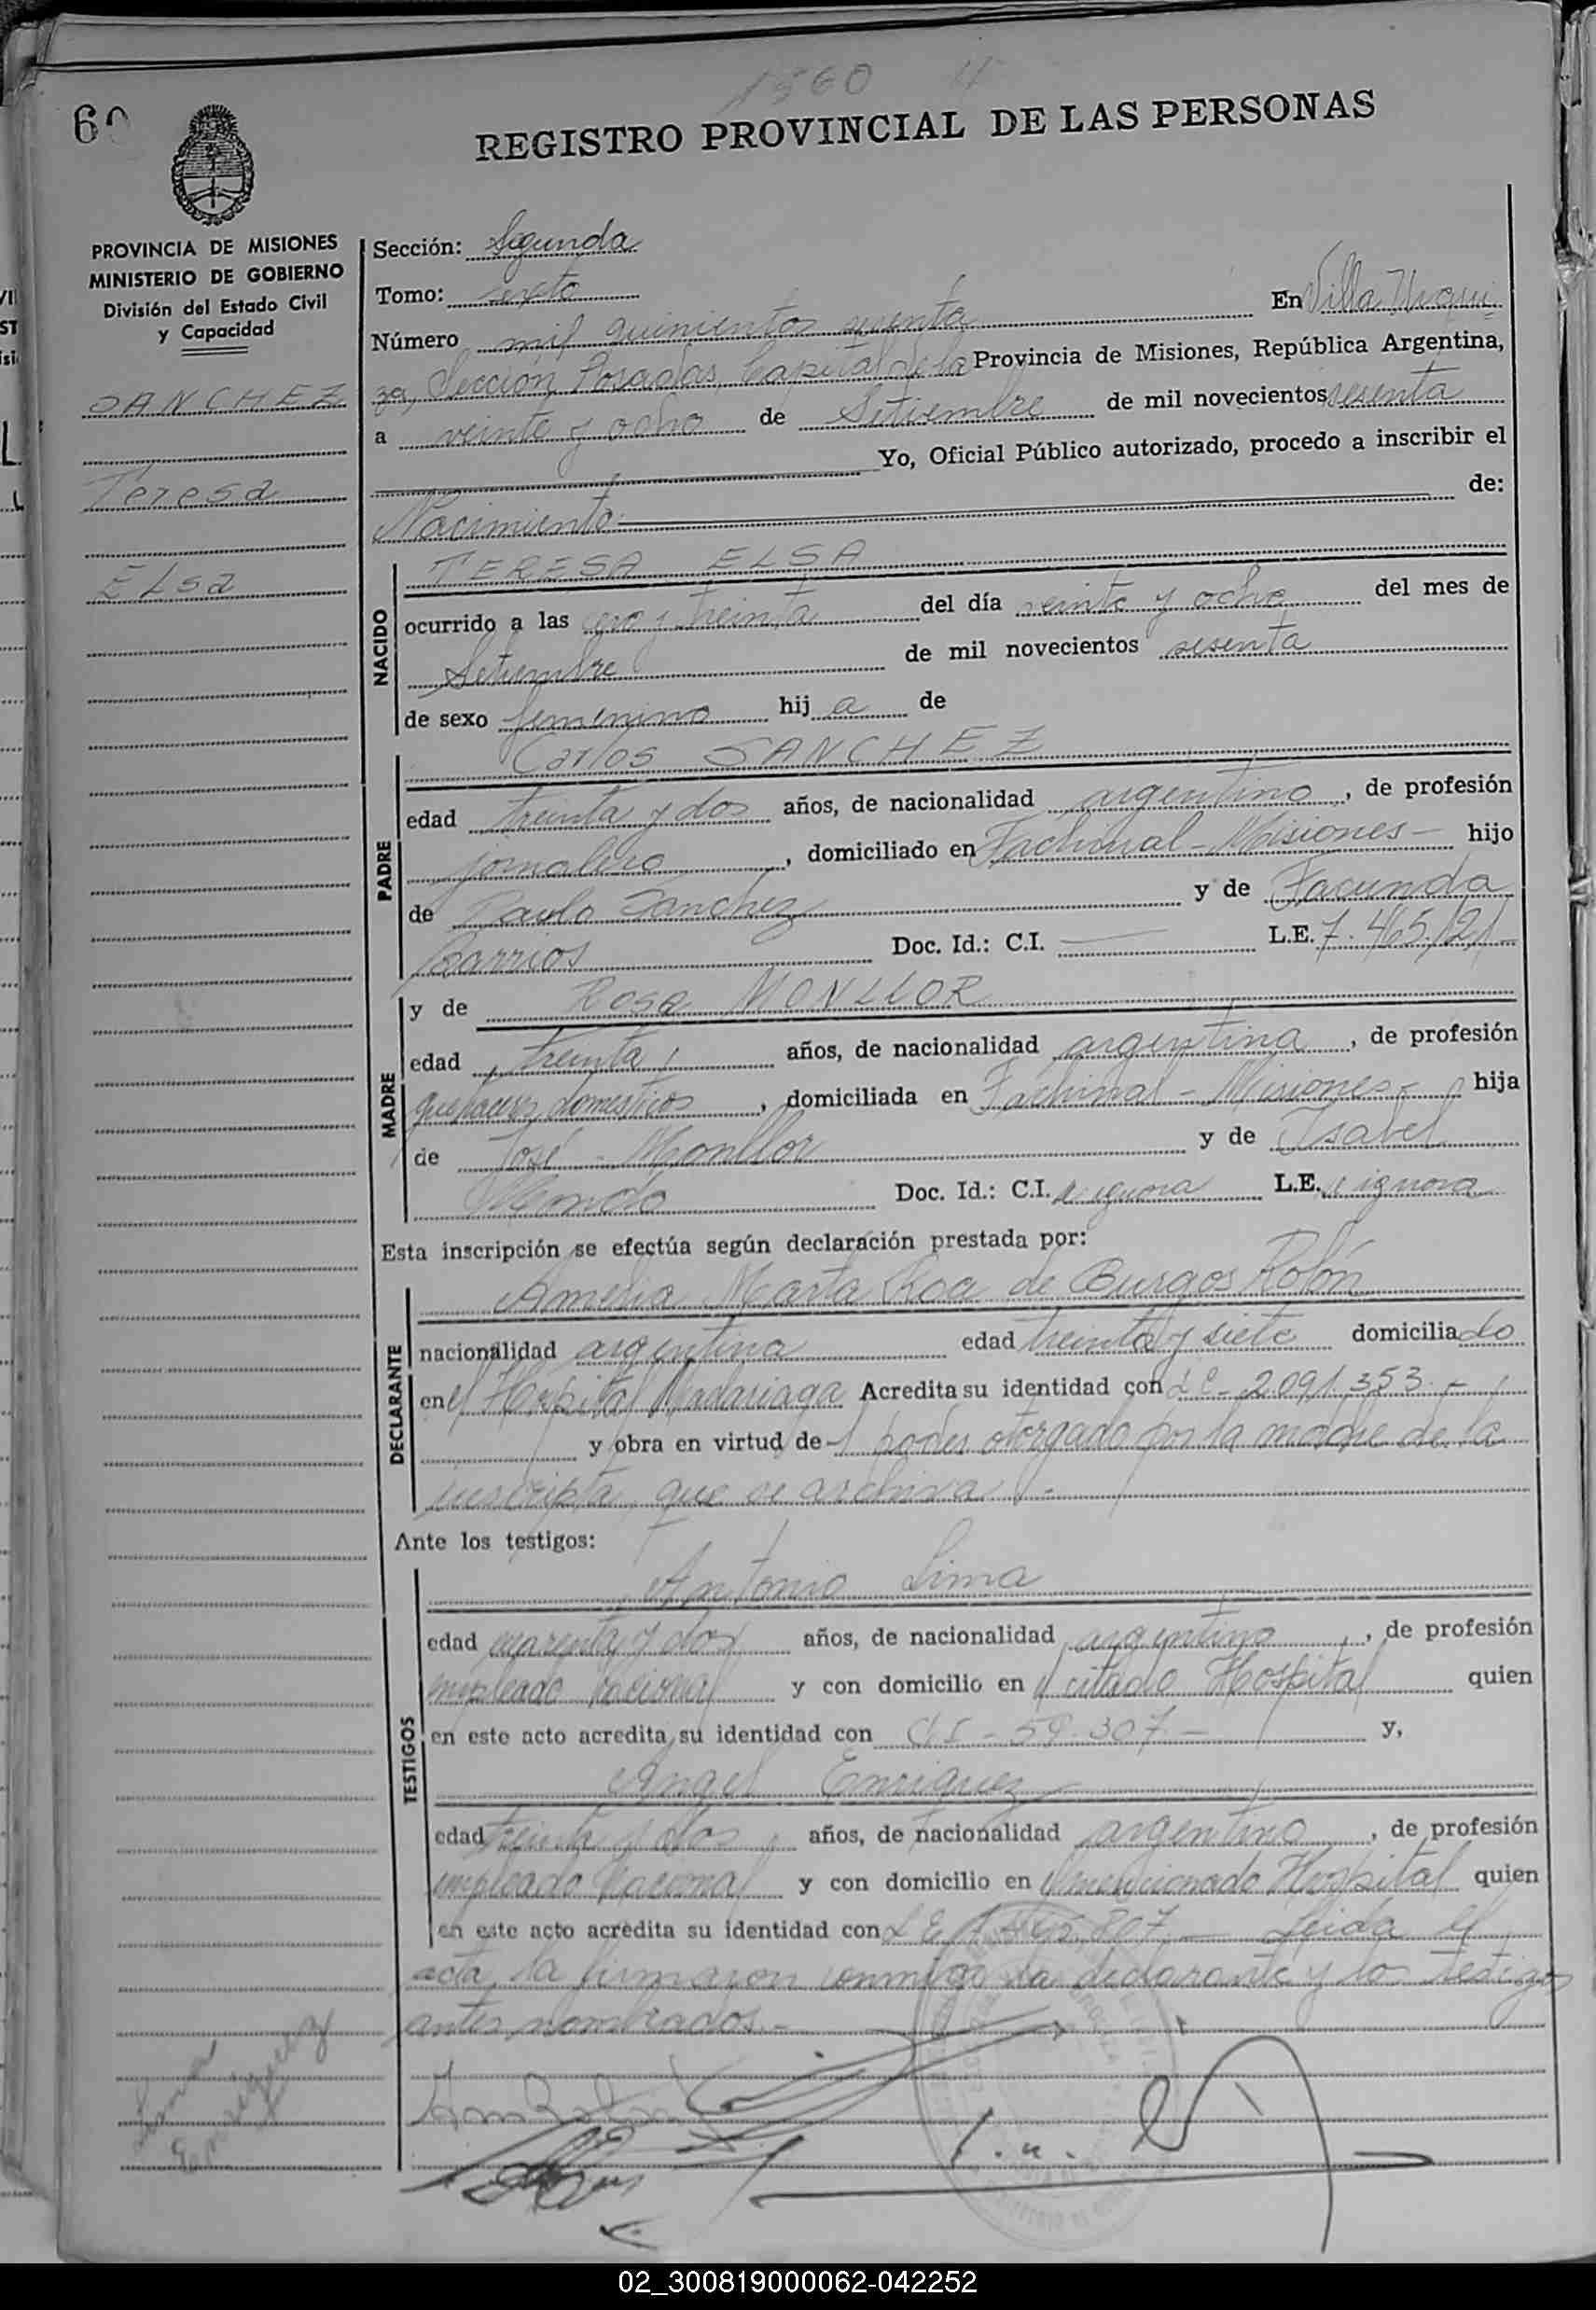 1560
60
REGISTRO PROVINCIAL DE LAS PERSONAS
PROVINCIA DE MISIONES
MINISTERIO DE GOBIERNO
División del Estado Civil
y Capacidad
SANCHEZ
Teresa
Elsa
Sección: Segunda
Tomo: sexto
Número mil quinientos sesenta En Villa Urqui
za, Sección Posadas, Capital de la Provincia de Misiones, República Argentina,
a veinte y ocho de Setiembre de mil novecientos sesenta
Yo, Oficial Público autorizado, procedo a inscribir el
Nacimiento de:
NACIDO
TERESA ELSA
ocurrido a las cero y treinta del día veinte y ocho del mes de
Setiembre de mil novecientos sesenta
de sexo femenino hij a de
PADRE
Carlos SANCHEZ
edad treinta y dos años, de nacionalidad argentino, de profesión
jornalero, domiciliado en Fachinal - Misiones - hijo
de Paulo Sanchez y de Facunda
Barrios Doc. Id.: C.I. — L.E. 7.465.121
MADRE
y de Rosa MONLLOR
edad treinta años, de nacionalidad argentina, de profesión
quehaceres domesticos, domiciliada en Fachinal - Misiones - hija
de José Monllor y de Isabel
Doc. Id.: C.I. se ignora L.E. se ignora
Esta inscripción se efectúa según declaración prestada por:
DECLARANTE
Amelia Marta Roa de Burgos Rolón
nacionalidad argentina edad treinta y siete domiciliado
en el Hospital Madariaga Acredita su identidad con LC - 2.091.353 -
y obra en virtud del poder otorgado por la madre de la
inscripta, que se archiva. -
Ante los testigos:
TESTIGOS
Antonio Lima
edad cuarenta y dos años, de nacionalidad argentino, de profesión
empleado Nacional y con domicilio en el citado Hospital quien
en este acto acredita su identidad con CI - 59.307 - y,
Angel Enriquez
edad treinta y dos años, de nacionalidad argentino, de profesión
empleado Nacional y con domicilio en el mencionado Hospital quien
en este acto acredita su identidad con LE 807 - Leida el
acta, la firmaron conmigo la declarante y los testigos
antes nombrados. -
Lima
Enriquez
02_300819000062-042252